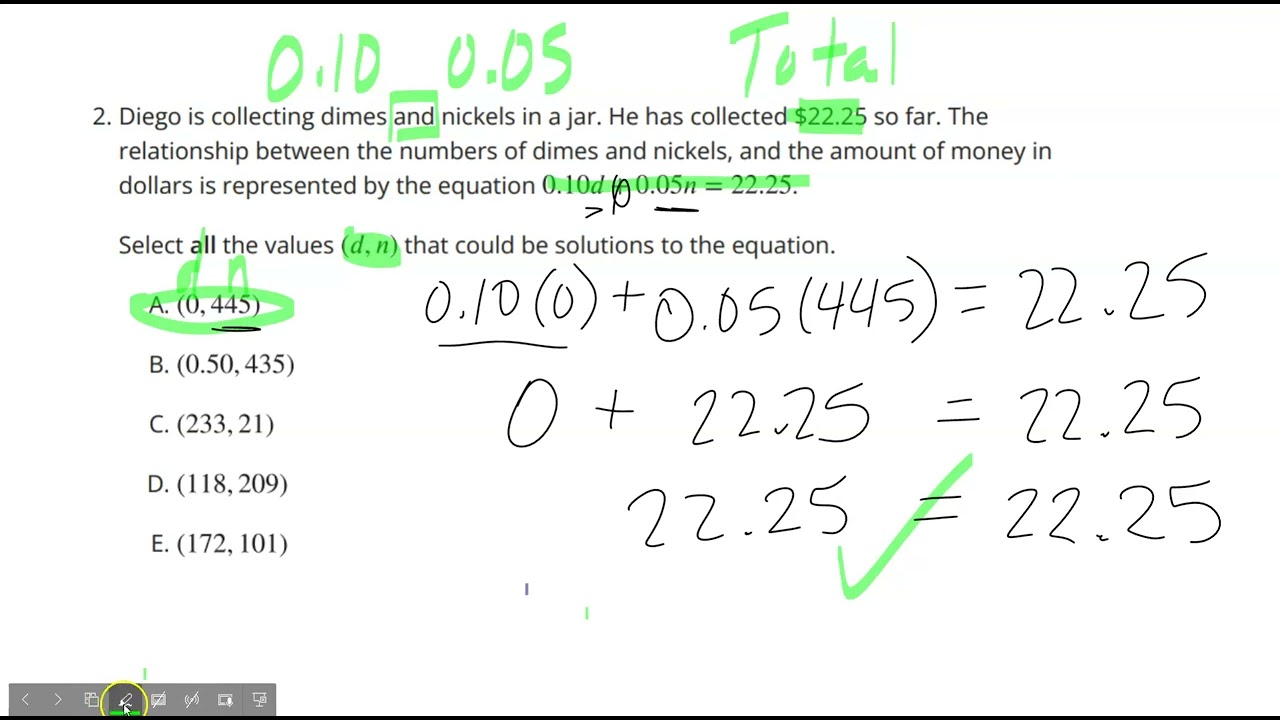 0.10 0.05 Total
2. Diego is collecting dimes and nickels in a jar. He has collected $22.25 so far. The
relationship between the numbers of dimes and nickels, and the amount of money in
dollars is represented by the equation 0.10d 0.05n = 22.25.
Select all the values (d, n) that could be solutions to the equation.
d n
A. (0, 445)
0.10(0) + 0.05(445) = 22.25
B. (0.50, 435)
0 + 22.25 = 22.25
C. (233, 21)
D. (118, 209)
22.25 = 22.25
E. (172, 101)